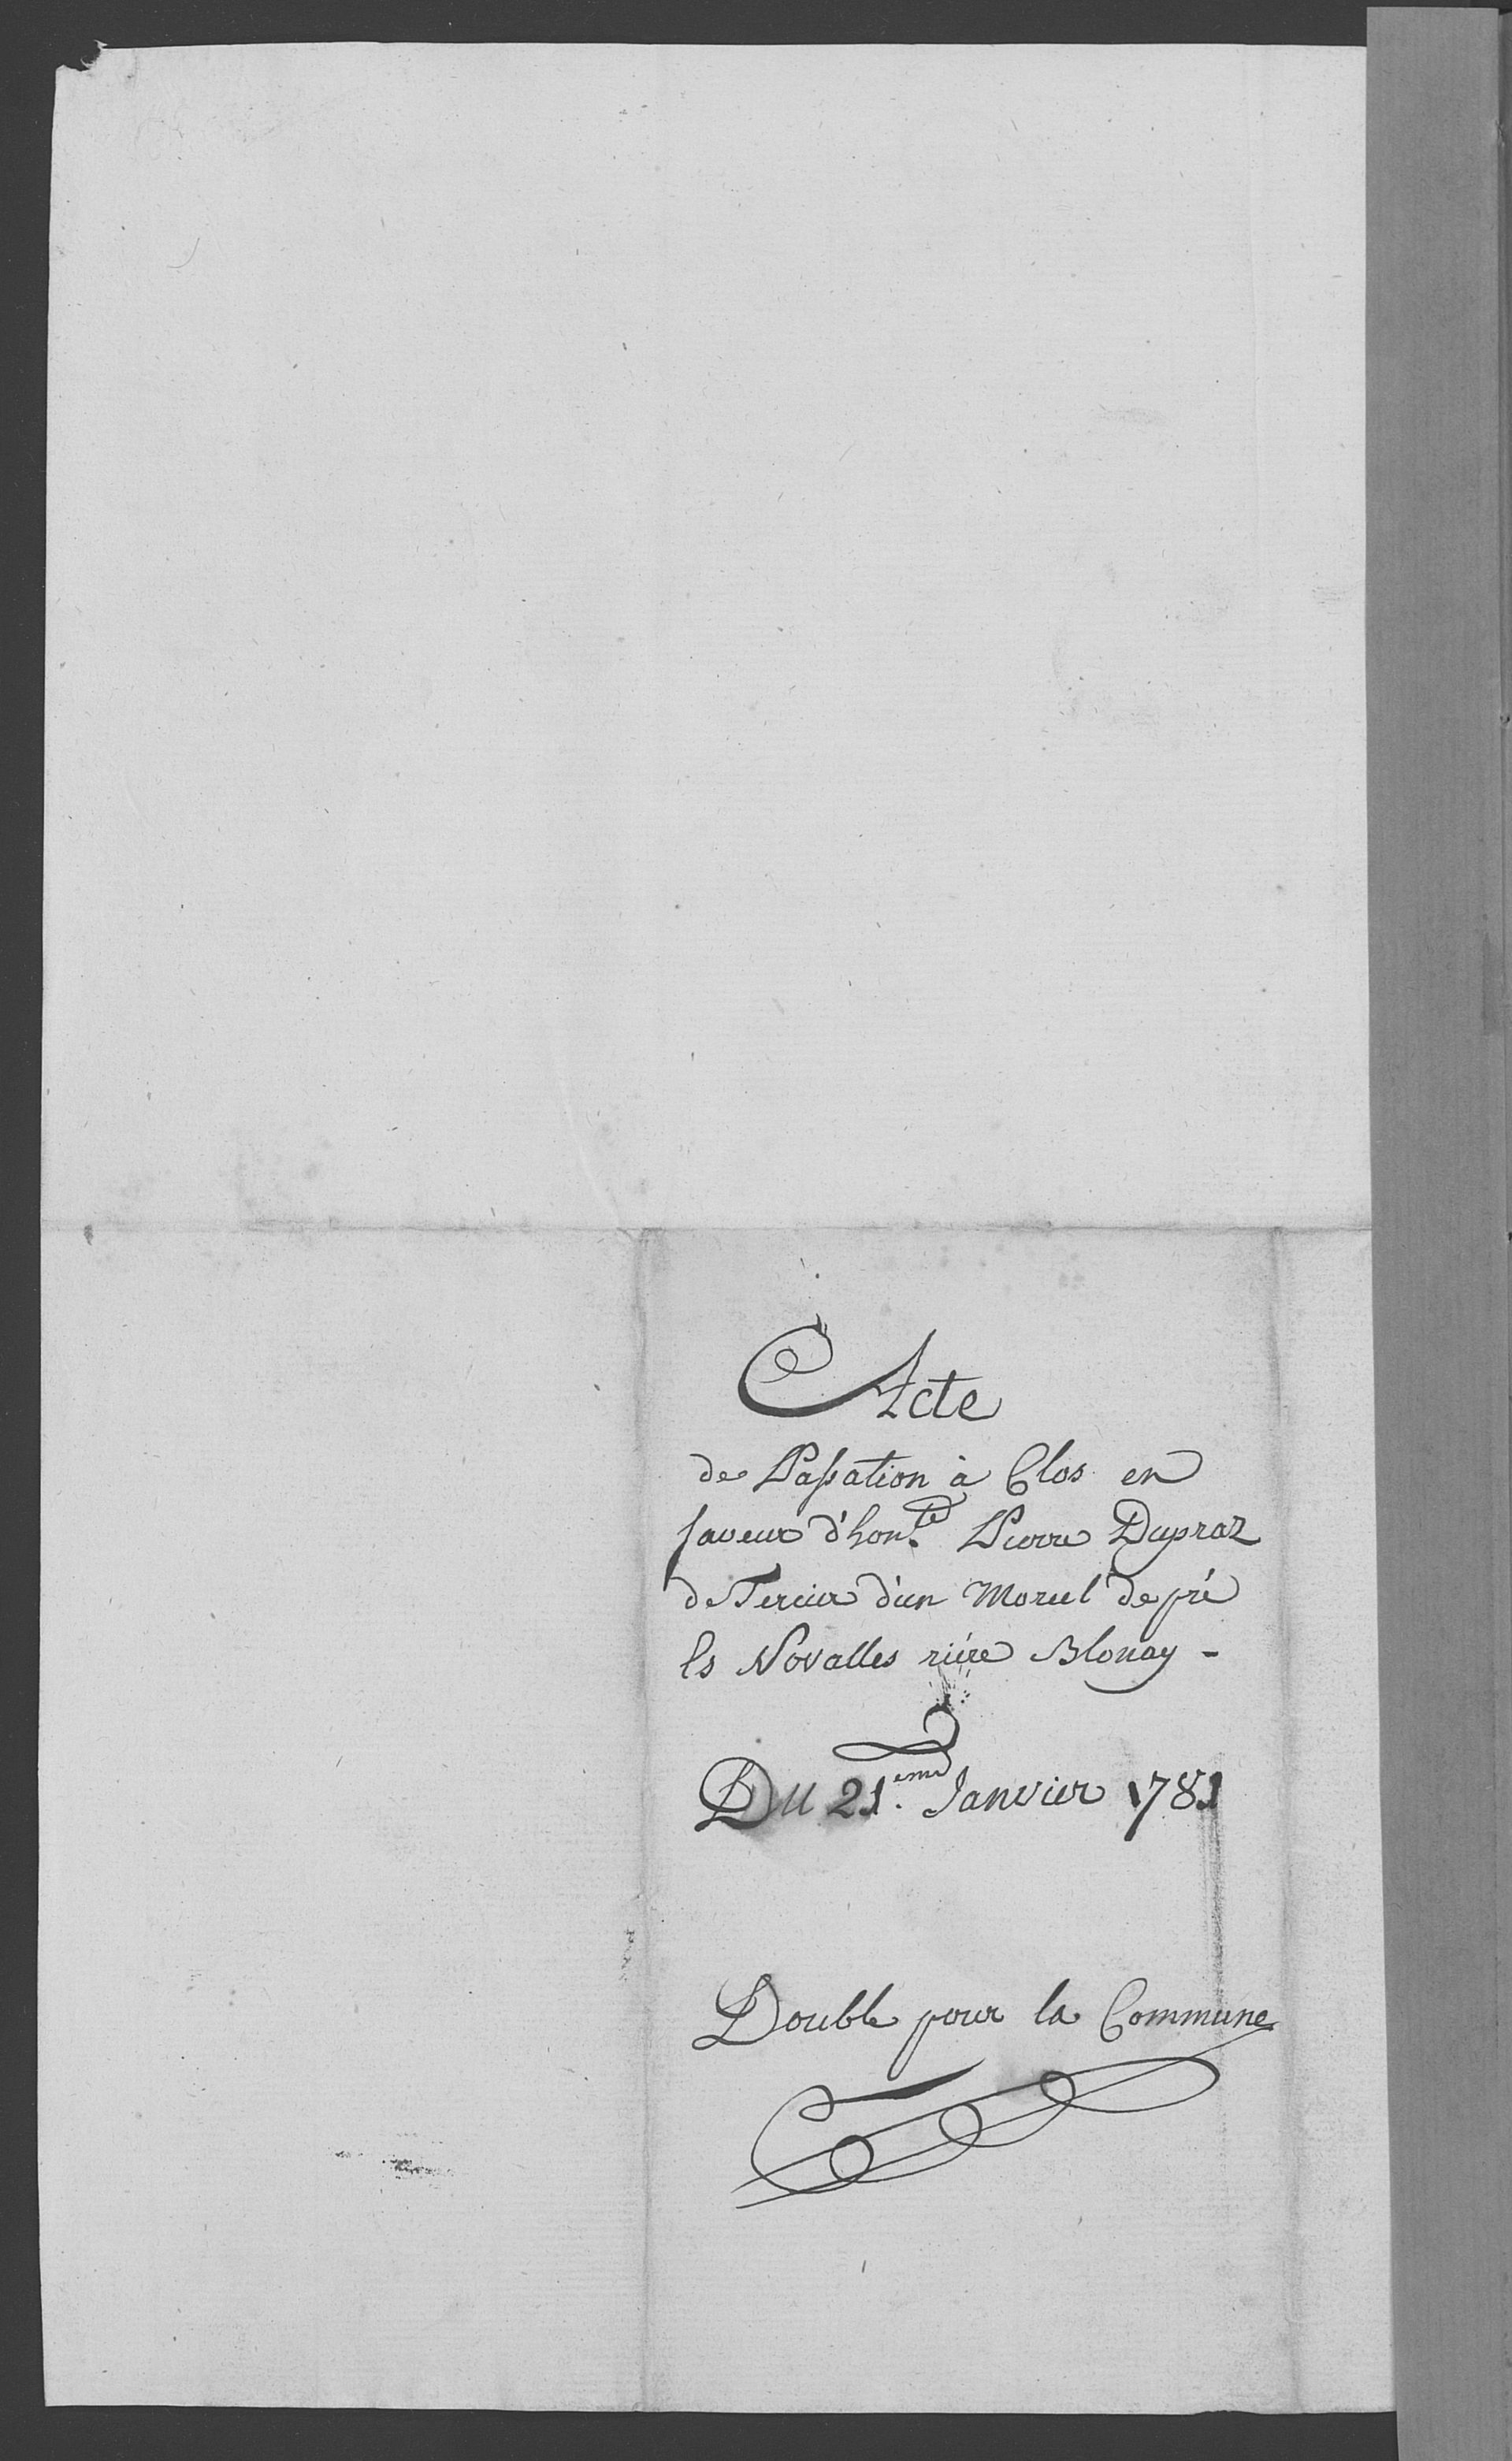 Acte
de Passation à Clos en
faveur d'hon.te Pierre Dupraz
de Tercier d'un Morcel de pré
Es Novalles riére Blonay -
Du 21.eme Janvier 1781
Double pour la Commune